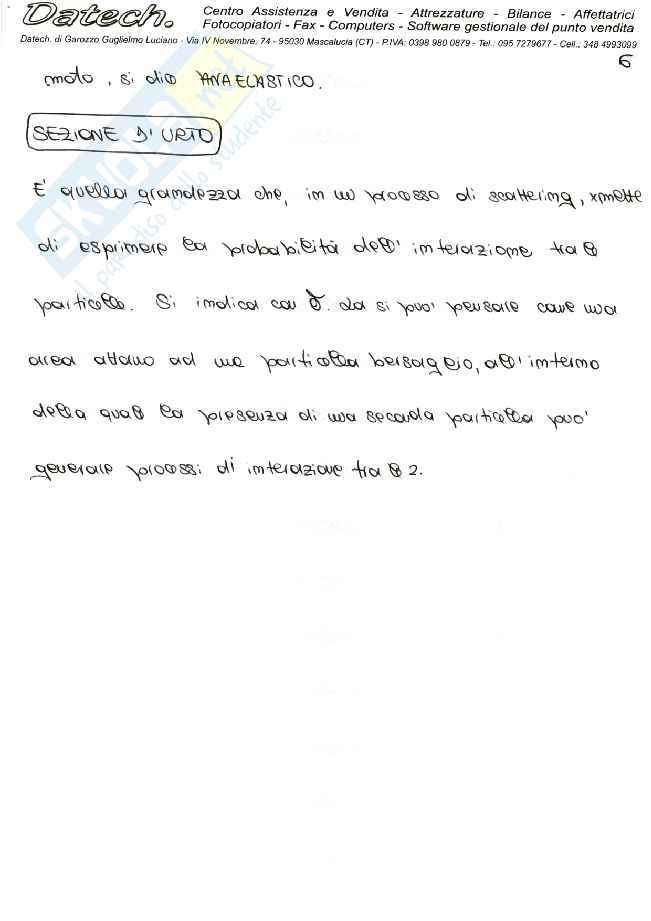 Datech.
Centro Assistenza e Vendita - Attrezzature - Bilance - Affettatrici
Fotocopiatori - Fax - Computers - Software gestionale del punto vendita
Datech. di Garozzo Guglielmo Luciano - Via IV Novembre, 74 - 95030 Mascalucia (CT) - P.IVA: 0398 980 0879 - Tel.: 095 7279677 - Cell.: 348 4993099
6
moto, si dice ANAELASTICO.
SEZIONE D'URTO
E' quella grandezza che, in un processo di scattering, xmette
di esprimere la probabilità dell'interazione tra le
particelle. Si indica con σ. La si può pensare come una
area attorno ad una particella bersaglio, all'interno
della quale la presenza di una seconda particella può
generare processi di interazione tra le 2.
SKUOLA.net
il paradiso dello studente